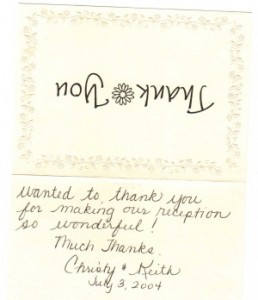 Thank You
Wanted to thank you
for making our reception
so wonderful!
Much Thanks.
Christy & Keith
July 3, 2004